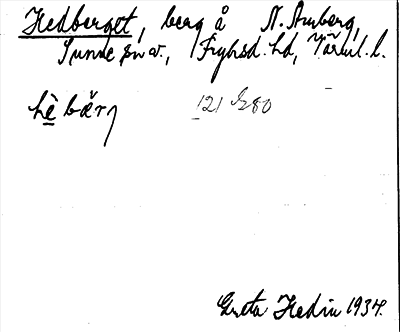 Hedberget, berg å N. Amberg,
Sunne snv., Fryksd. hd, Värml. l.
hè bærj 121 G80
Greta Hedin 1934.